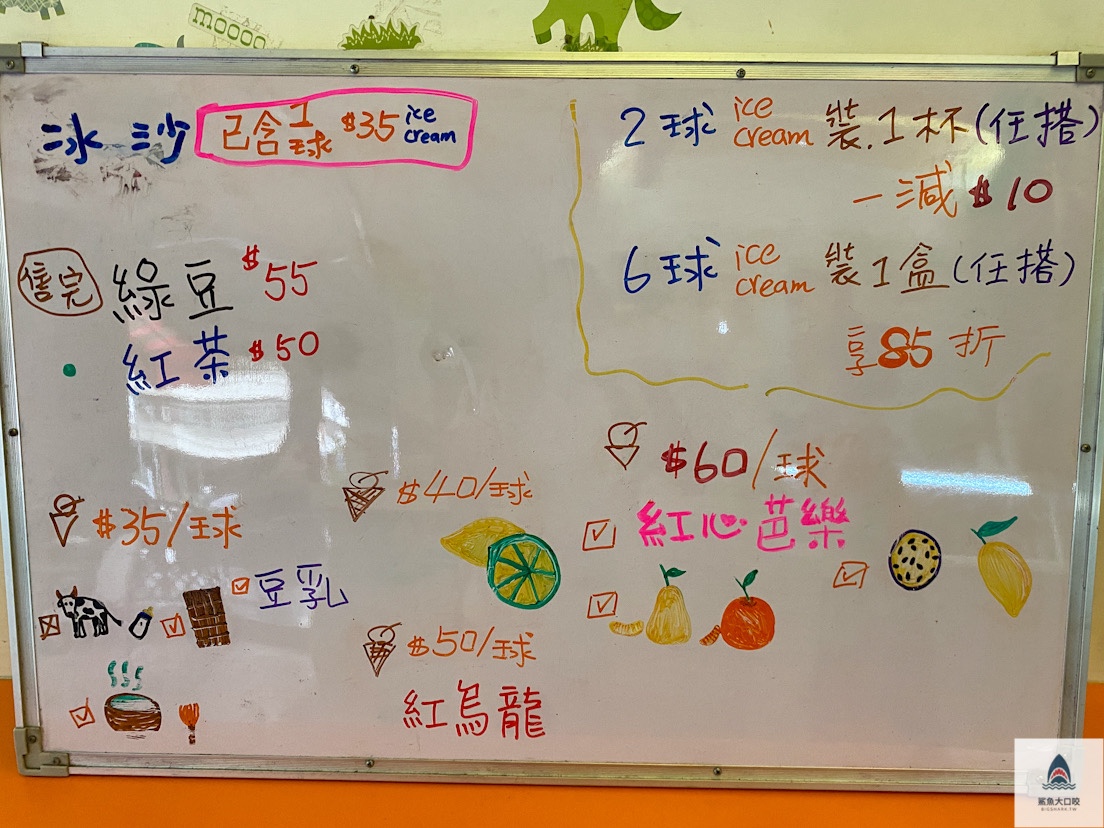 moooo
冰沙 已含1球 $35 ice cream
售完 綠豆 $55
紅茶 $50
2球 ice cream 裝.1杯(任搭)
一減 $10
6球 ice cream 裝1盒(任搭)
享85折
$35/球
豆乳
$40/球
$50/球
紅烏龍
$60/球
紅心芭樂
鯊魚大口咬
BIGSHARK.TW